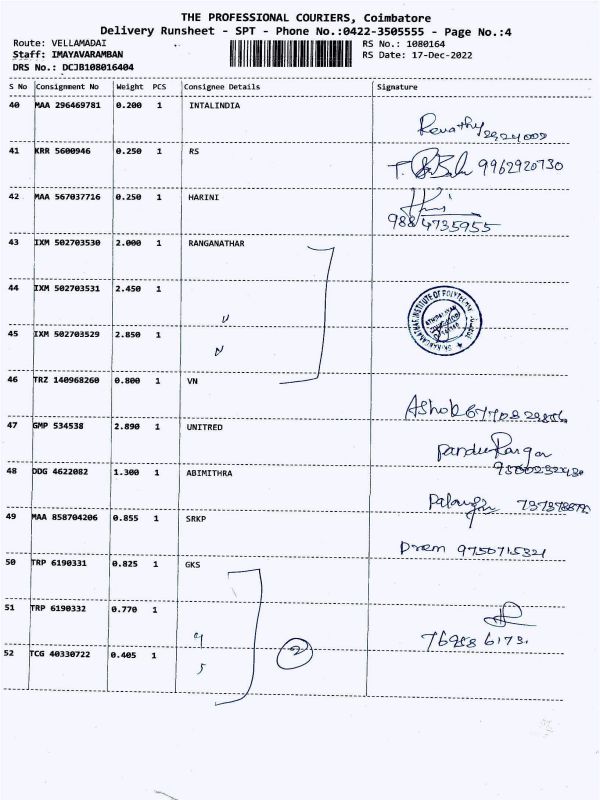 THE PROFESSIONAL COURIERS, Coimbatore
Delivery Runsheet - SPT - Phone No.:0422-3505555 - Page No.:4
Route: VELLAMADAI RS No.: 1080164
Staff: IMAYAVARAMBAN RS Date: 17-Dec-2022
DRS No.: DCJB108016404
S No Consignment No Weight PCS Consignee Details Signature
40 MAA 296469781 0.200 1 INTALINDIA
Revathy
41 KRR 5600946 0.250 1 RS
9962920730
42 MAA 567037716 0.250 1 HARINI
9884735955
43 IXM 502703530 2.000 1 RANGANATHAR
44 IXM 502703531 2.450 1
45 IXM 502703529 2.850 1
46 TRZ 140968260 0.800 1 VN
Ashok
47 GMP 534538 2.890 1 UNITRED
48 DDG 4622082 1.300 1 ABIMITHRA
49 MAA 858704206 0.855 1 SRKP
Prem 9750715321
50 TRP 6190331 0.825 1 GKS
51 TRP 6190332 0.770 1
52 TCG 40330722 0.405 1
2